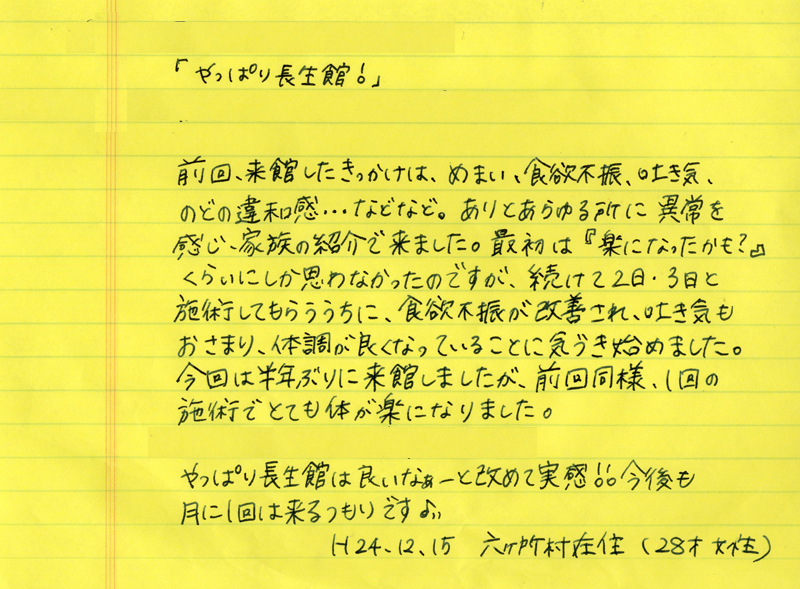 「やっぱり長生館!」
前回、来館したきっかけは、めまい、食欲不振、吐き気、
のどの違和感…などなど。ありとあらゆる所に異常を
感じ、家族の紹介で来ました。最初は『楽になったかも?』
くらいにしか思わなかったのですが、続けて2日・3日と
施術してもらううちに、食欲不振が改善され、吐き気も
おさまり、体調が良くなっていることに気づき始めました。
今回は半年ぶりに来館しましたが、前回同様、1回の
施術でとても体が楽になりました。
やっぱり長生館は良いなぁーと改めて実感!!今後も
月に1回は来るつもりです♪
H24.12.15 六ヶ所村在住(28才女性)